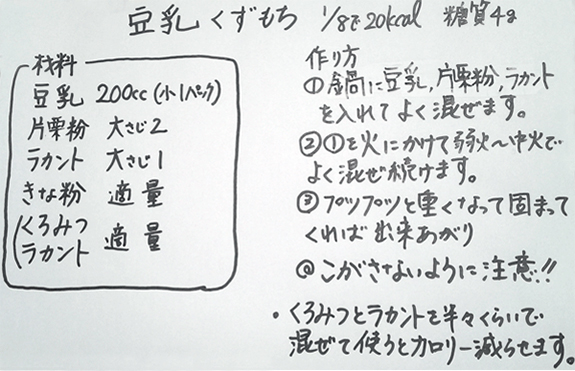 豆乳くずもち 1/8で20kcal 糖質4g
材料
豆乳 200cc(小1パック)
片栗粉 大さじ2
ラカント 大さじ1
きな粉 適量
(くろみつ
ラカント 適量
作り方
①鍋に豆乳,片栗粉,ラカント
を入れてよく混ぜます。
②①を火にかけて弱火〜中火で
よく混ぜ続けます。
③フツフツと重くなって固まって
くれば出来あがり
@こがさないように注意!!
・くろみつとラカントを半々くらいで
混ぜて使うとカロリー減らせます。